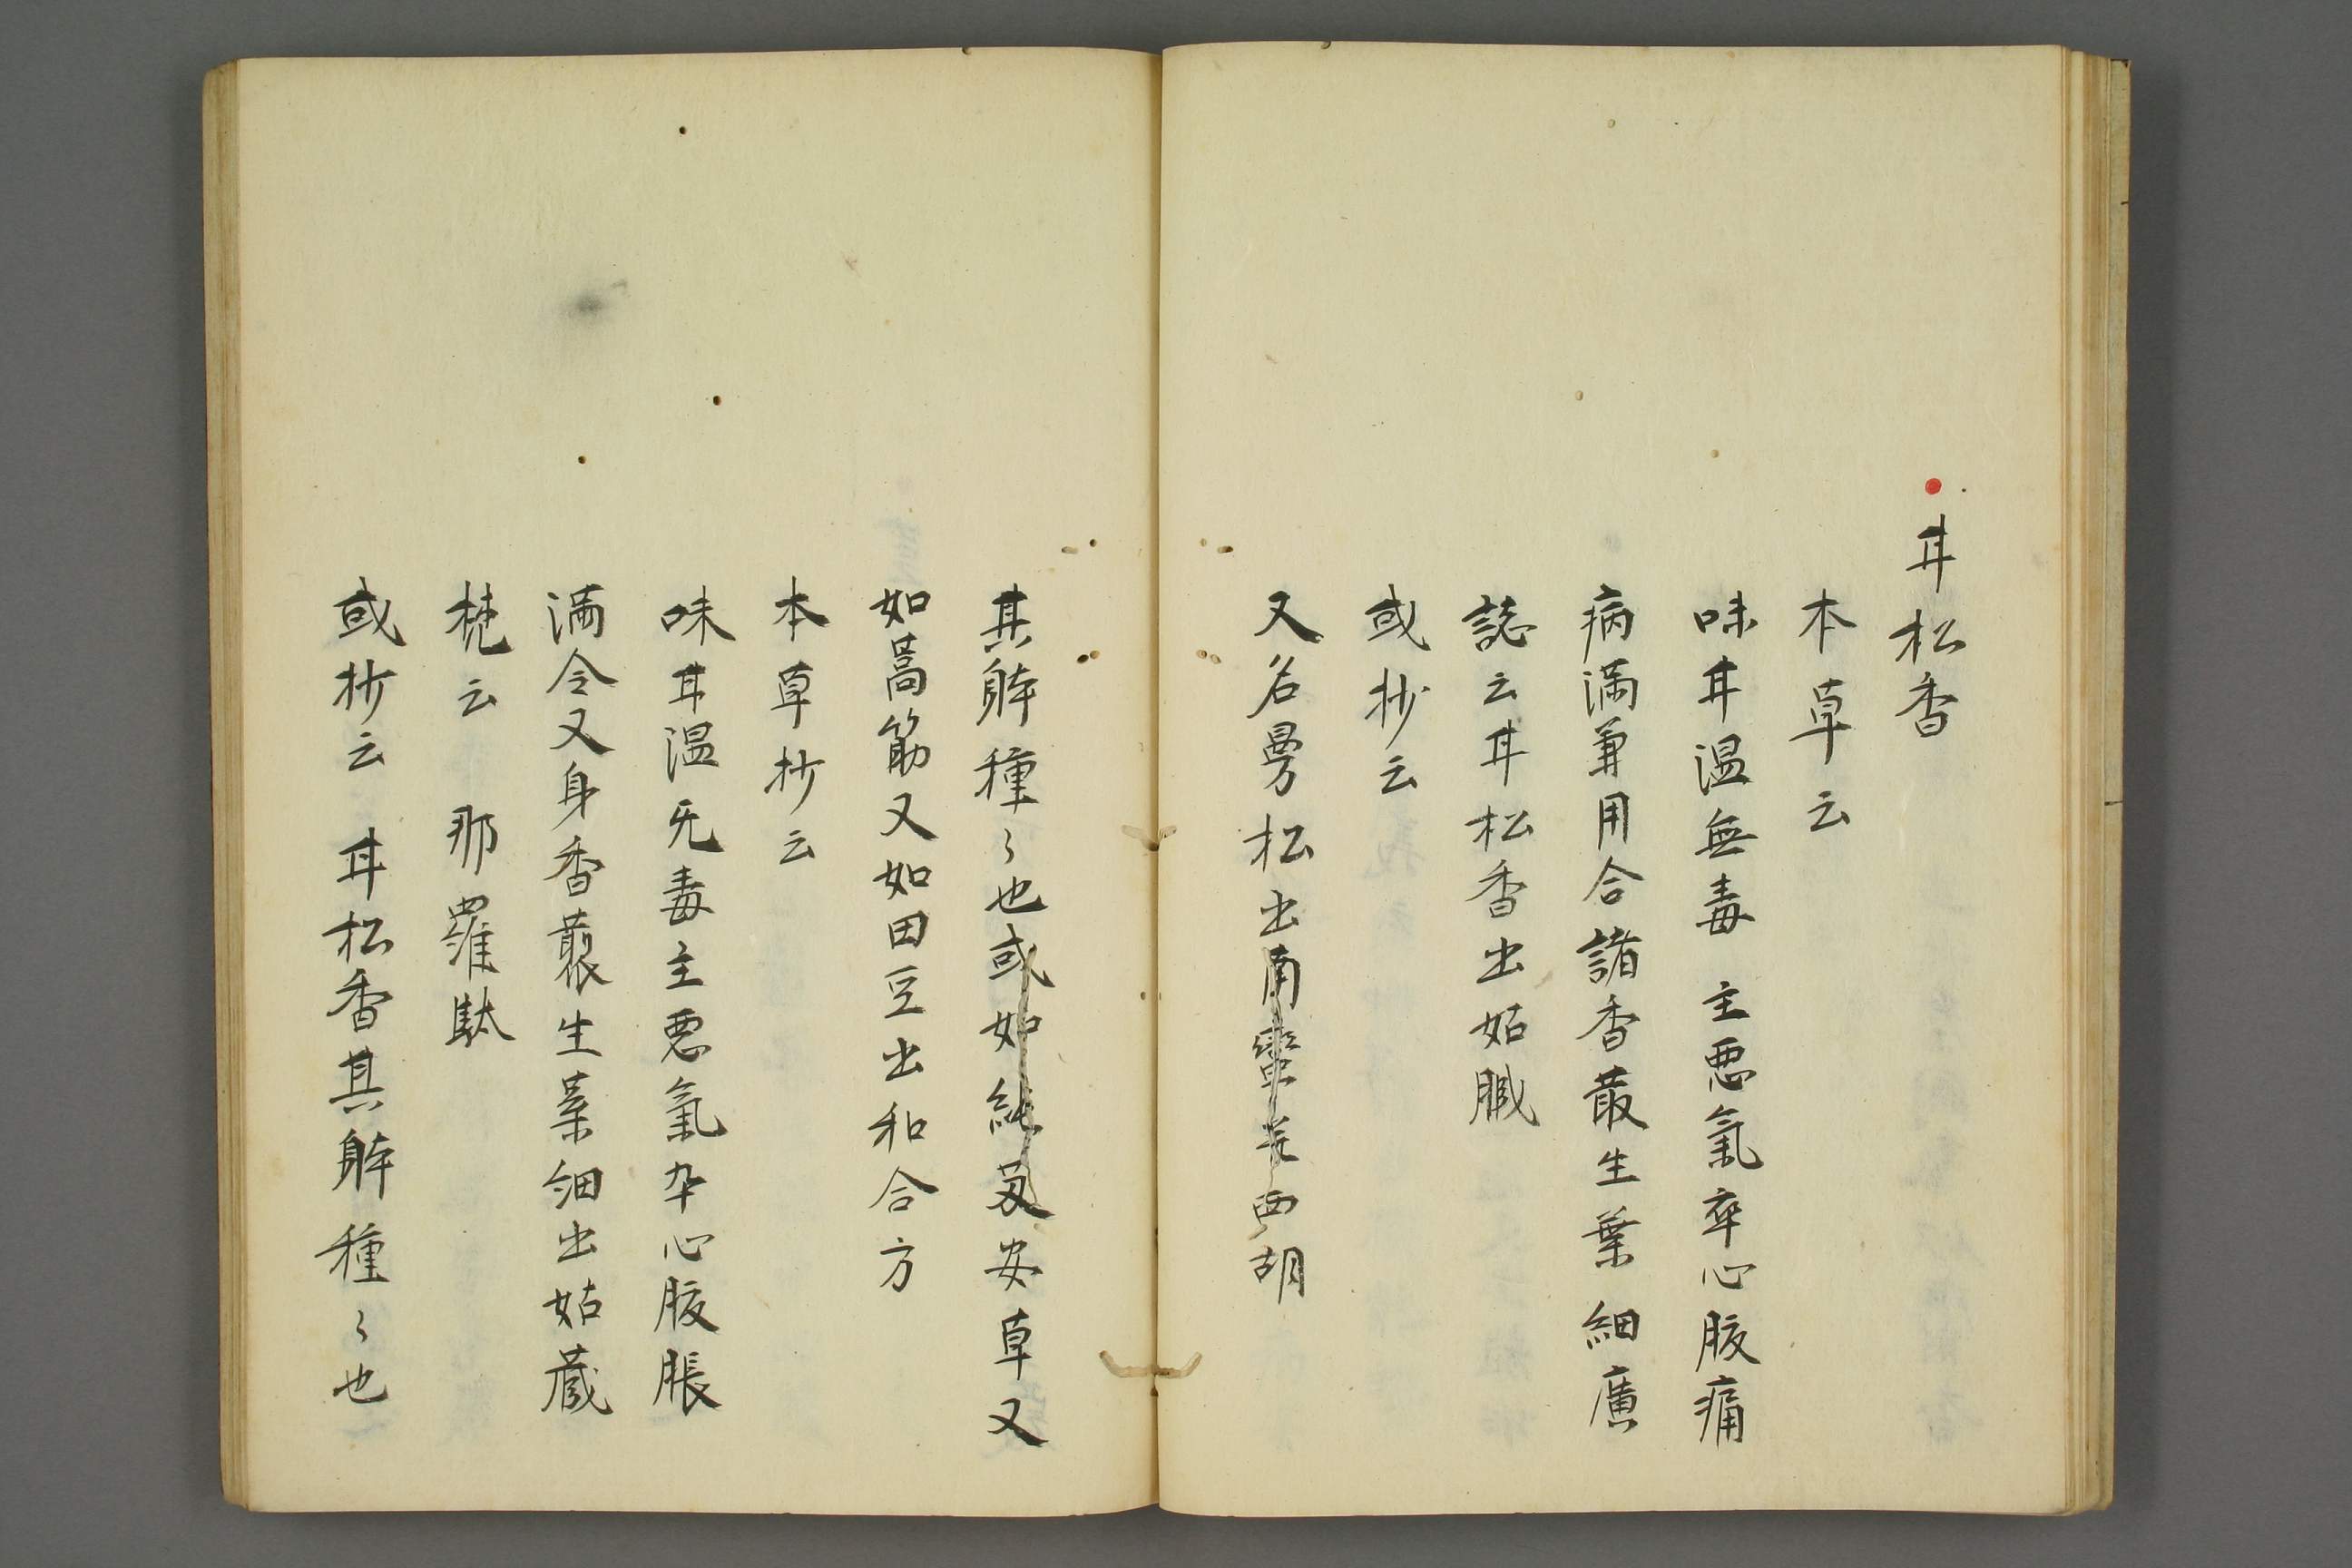 甘松香
本草云
味甘温無毒 主悪氣卒心腹痛
病滿兼用合諸香叢生葉細廣
誌云甘松香出姑臓
或抄云
又名曼松出南蛮并西胡
其躰種〻也或如純 安草又
如蒿筋又如田豆出和合方
本草抄云
味甘温无毒主悪氣卆心腹脹
滿令又身香藂生葉細出姑蔵
梵云 那羅駄
或抄云 甘松香其躰種〻也